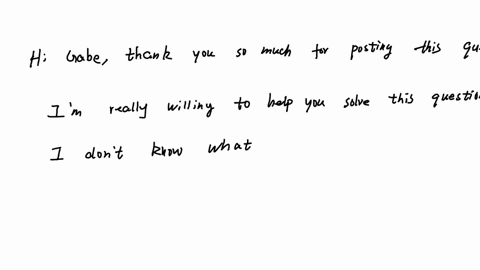 Hi Gabe, thank you so much for posting this qu
I'm really willing to help you solve this question
I don't know what